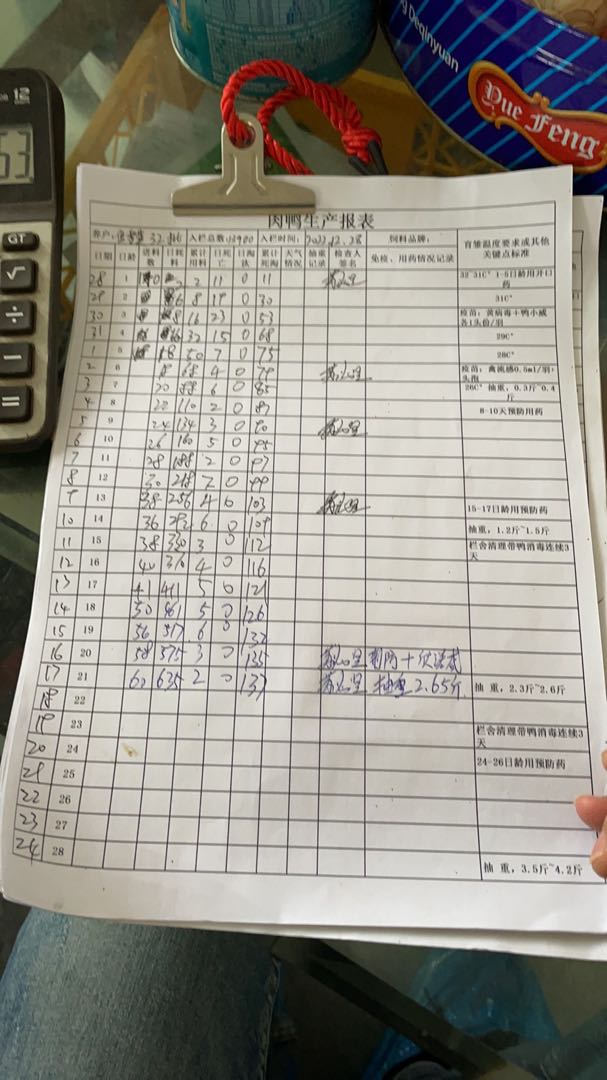 12
53
GT
√
÷
−
+
=
Deqinyuan
Yue Feng
肉鸭生产报表
养户: 入栏总数: 13900 入栏时间: 2022.12.28 饲料品牌: 育雏温度要求或其他关键点标准
日期 日龄 进料数 日耗料 累计用料 日死亡 日淘汰 累计死淘 天气情况 抽重记录 检查人签名 免疫、用药情况记录
28 1 2 11 0 11 32~31C° 1-5日龄用开口药
29 2 6 8 19 0 30 31C°
30 3 8 16 23 0 53 疫苗：黄病毒+鸭小威各1头份/羽
31 4 16 32 15 0 68 29C°
1 5 18 50 7 0 75 28C°
2 6 18 68 4 0 79 疫苗：禽流感0.5ml/羽·头孢
3 7 20 88 6 0 85 26C° 抽重，0.3斤~0.4斤
4 8 110 2 0 87 8-10天预防用药
5 9 24 134 3 0 90
6 10 26 160 5 0 95
7 11 28 188 2 0 97
8 12 30 218 2 0 99
9 13 38 256 4 0 103 15-17日龄用预防药
10 14 36 292 6 0 109 抽重，1.2斤~1.5斤
11 15 38 330 3 0 112 栏舍清理带鸭消毒连续3天
12 16 40 370 4 0 116
13 17 41 411 5 0 121
14 18 50 461 5 0 126
15 19 56 517 6 0 132
16 20 58 575 3 0 135
17 21 60 635 2 0 137 抽重 2.65斤 抽重，2.3斤~2.6斤
18 22
19 23 栏舍清理带鸭消毒连续3天
20 24 24-26日龄用预防药
21 25
22 26
23 27
24 28 抽重，3.5斤~4.2斤